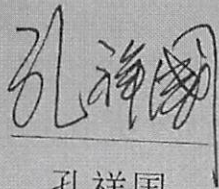 孔祥國
孔祥国